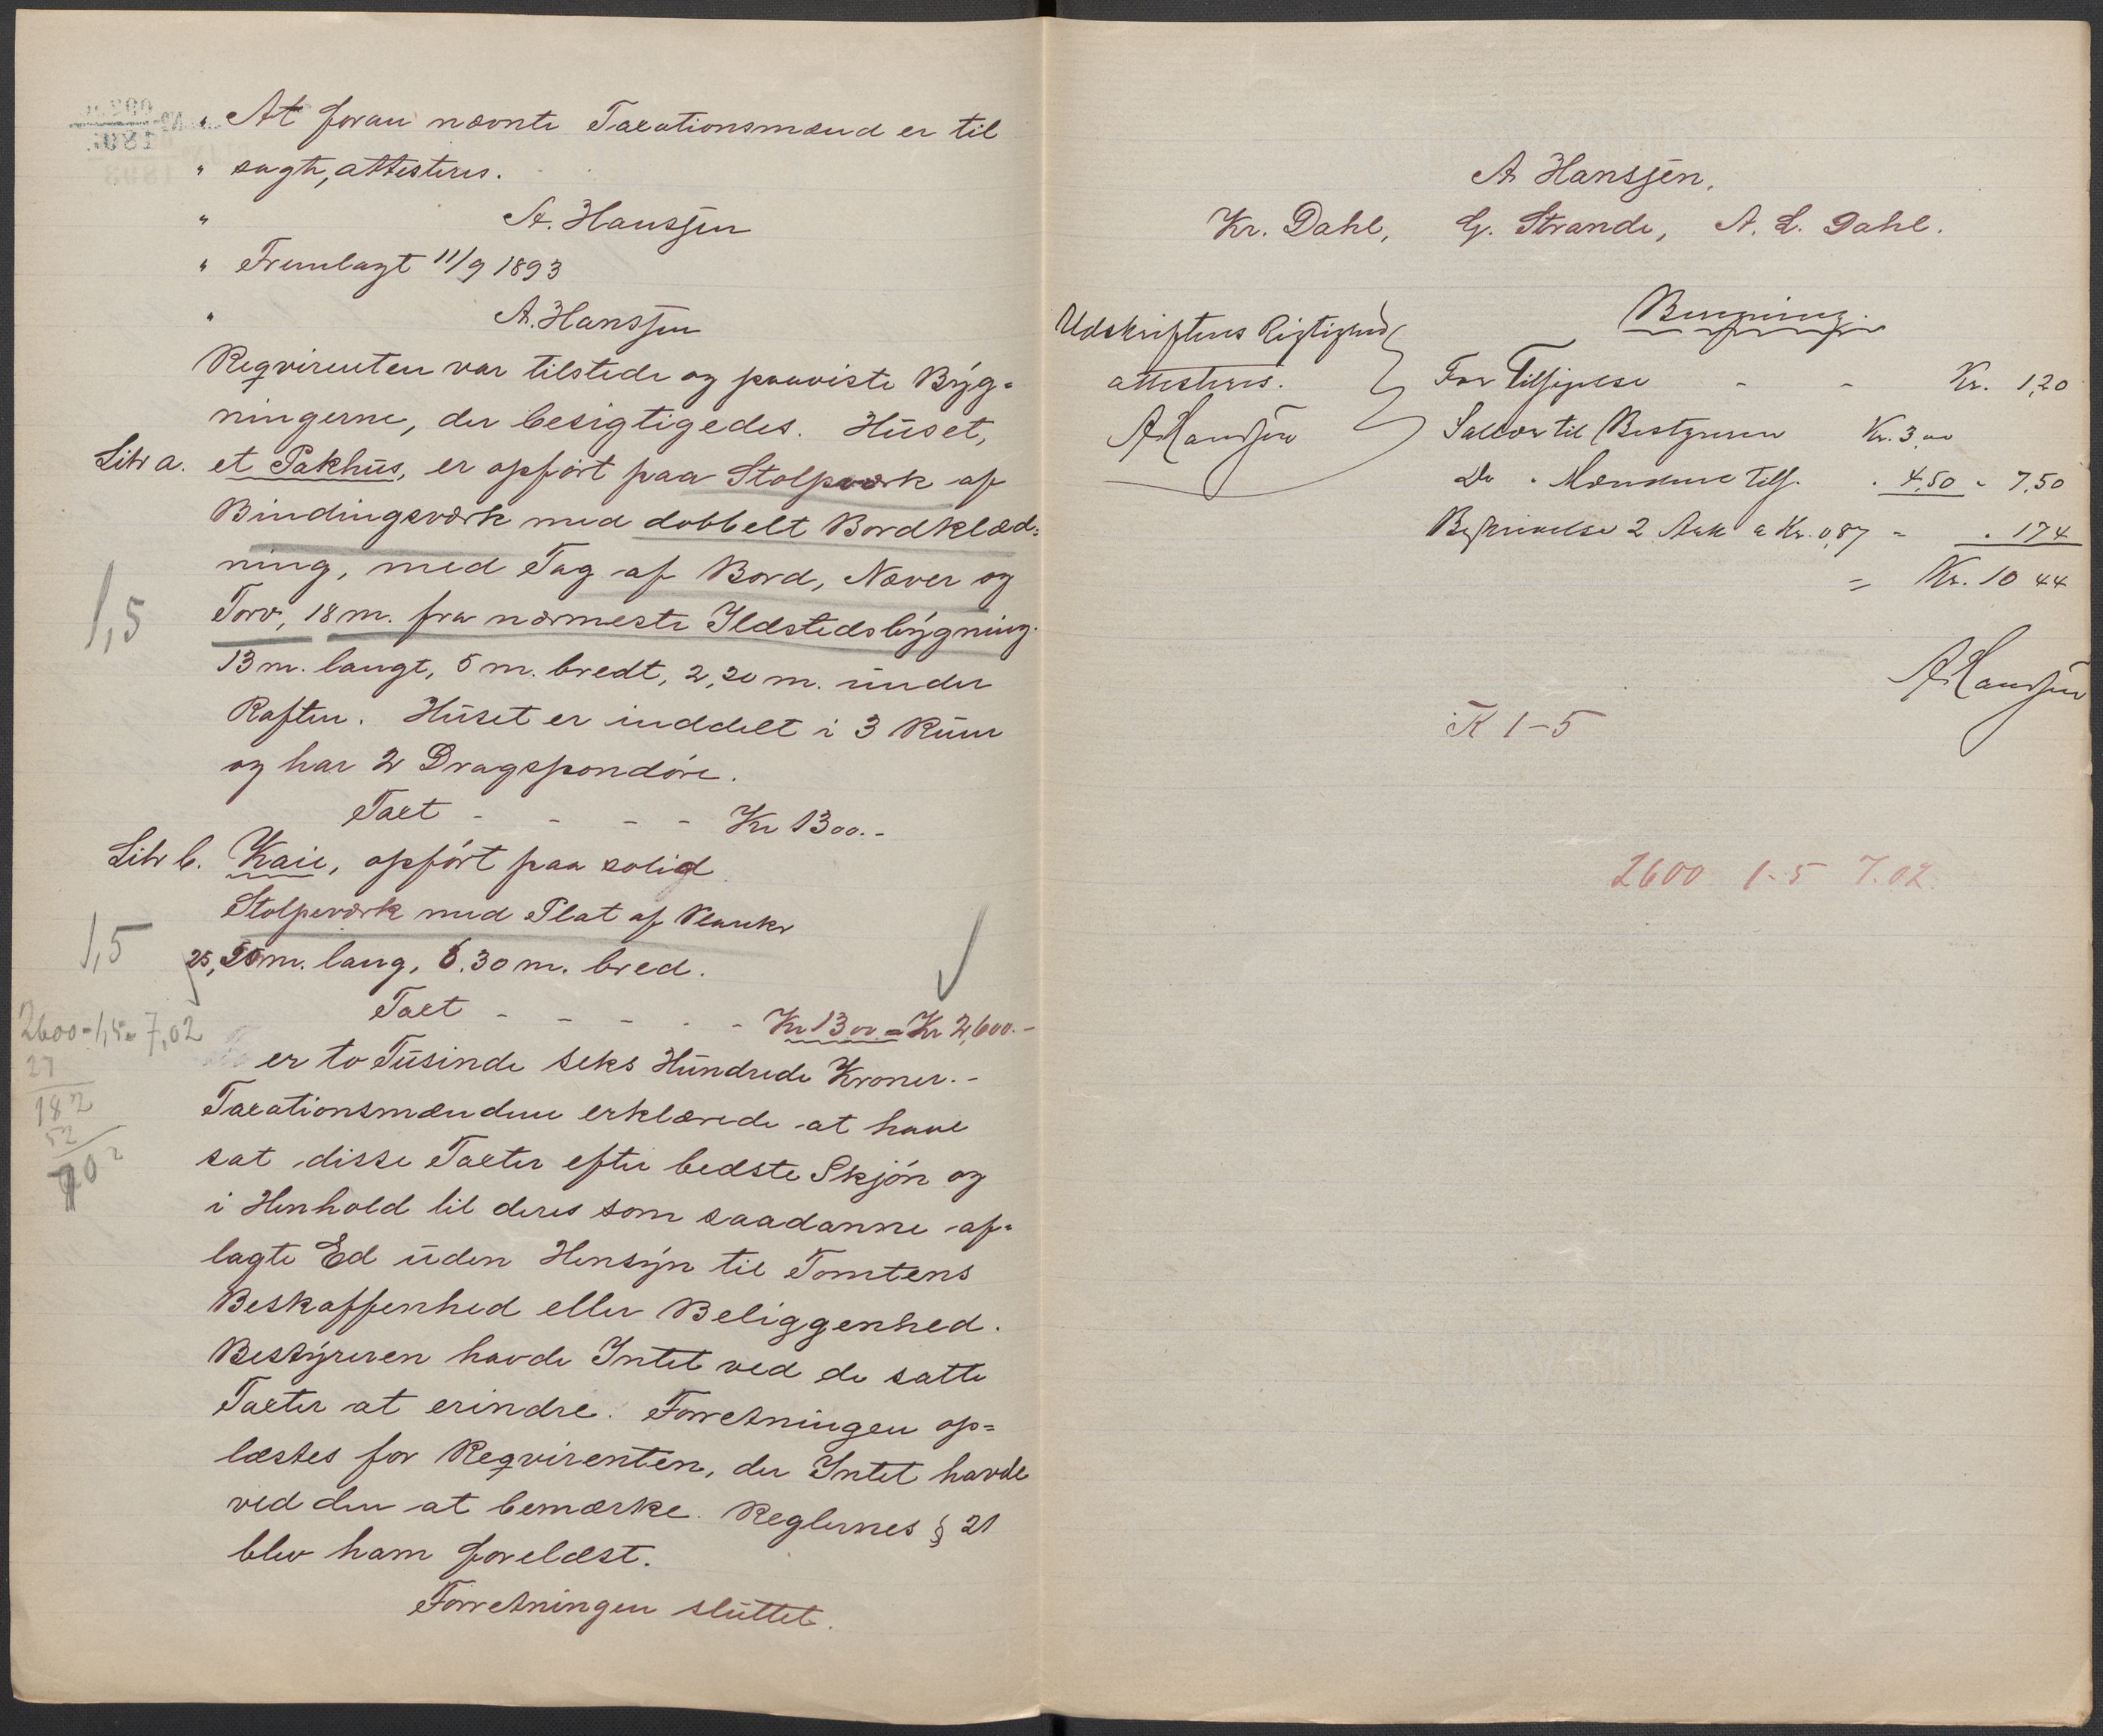 „ At foran nævnte Taxationsmænd er til
„ sagte, attesteres.
„ A. Hanssen
„ Fremlagt 11/9 1893
„ A. Hanssen
Reqvirenten var tilstede og paaviste Byg=
ningerne, der besigtigedes. Huset,
Litr a. et Pakhus, er opført paa Stolpværk af
Bindingsværk med dobbelt Bordklæd=
ning, med Tag af Bord, Næver og
1,5 Torv, 18 m. fra nærmeste Ildstedsbygning.
13 m. langt, 5 m. bredt, 2,20 m. under
Raften. Huset er inddelt i 3 Rum
og har 2 Dragspondøre.
Taxt - - - - Kr 1300.-
Litr b. Kaie, opført paa solid
Stolpeværk med Plat af Planker
1,5 25,50 m. lang, 6.30 m. bred.
Taxt - - - - - Kr 1300 = Kr 2,600.-
2600 - 1,5 = 7,02
27
182
52
702
er to Tusinde seks Hundrede Kroner.-
Taxationsmændene erklærede at have
sat disse Taxter efter bedste Skjøn og
i Henhold til deres som saadanne af=
lagte Ed uden Hensyn til Tomtens
Beskaffenhed eller Beliggenhed.
Bestyreren havde Intet ved de satte
Taxter at erindre. Forretningen op=
læstes for Reqvirenten, der Intet havde
ved den at bemærke. Reglernes § 21
blev ham forelæst.
Forretningen sluttet.
A Hanssen.
Kr. Dahl, G. Strande, A. L. Dahl.
Udskriftens Rigtighed
attesteres.
AHanssen
Beregning.
For Tilsigelse - - Kr. 1,20
Sallær til Bestyreren Kr. 3,00
Do " Mændene tils. " 4,50 " 7,50
Beskrivelse 2 Ark a Kr. 0,87 - " 174
= Kr. 10 44
AHanssen
K 1-5
2600 1-5 7.02.